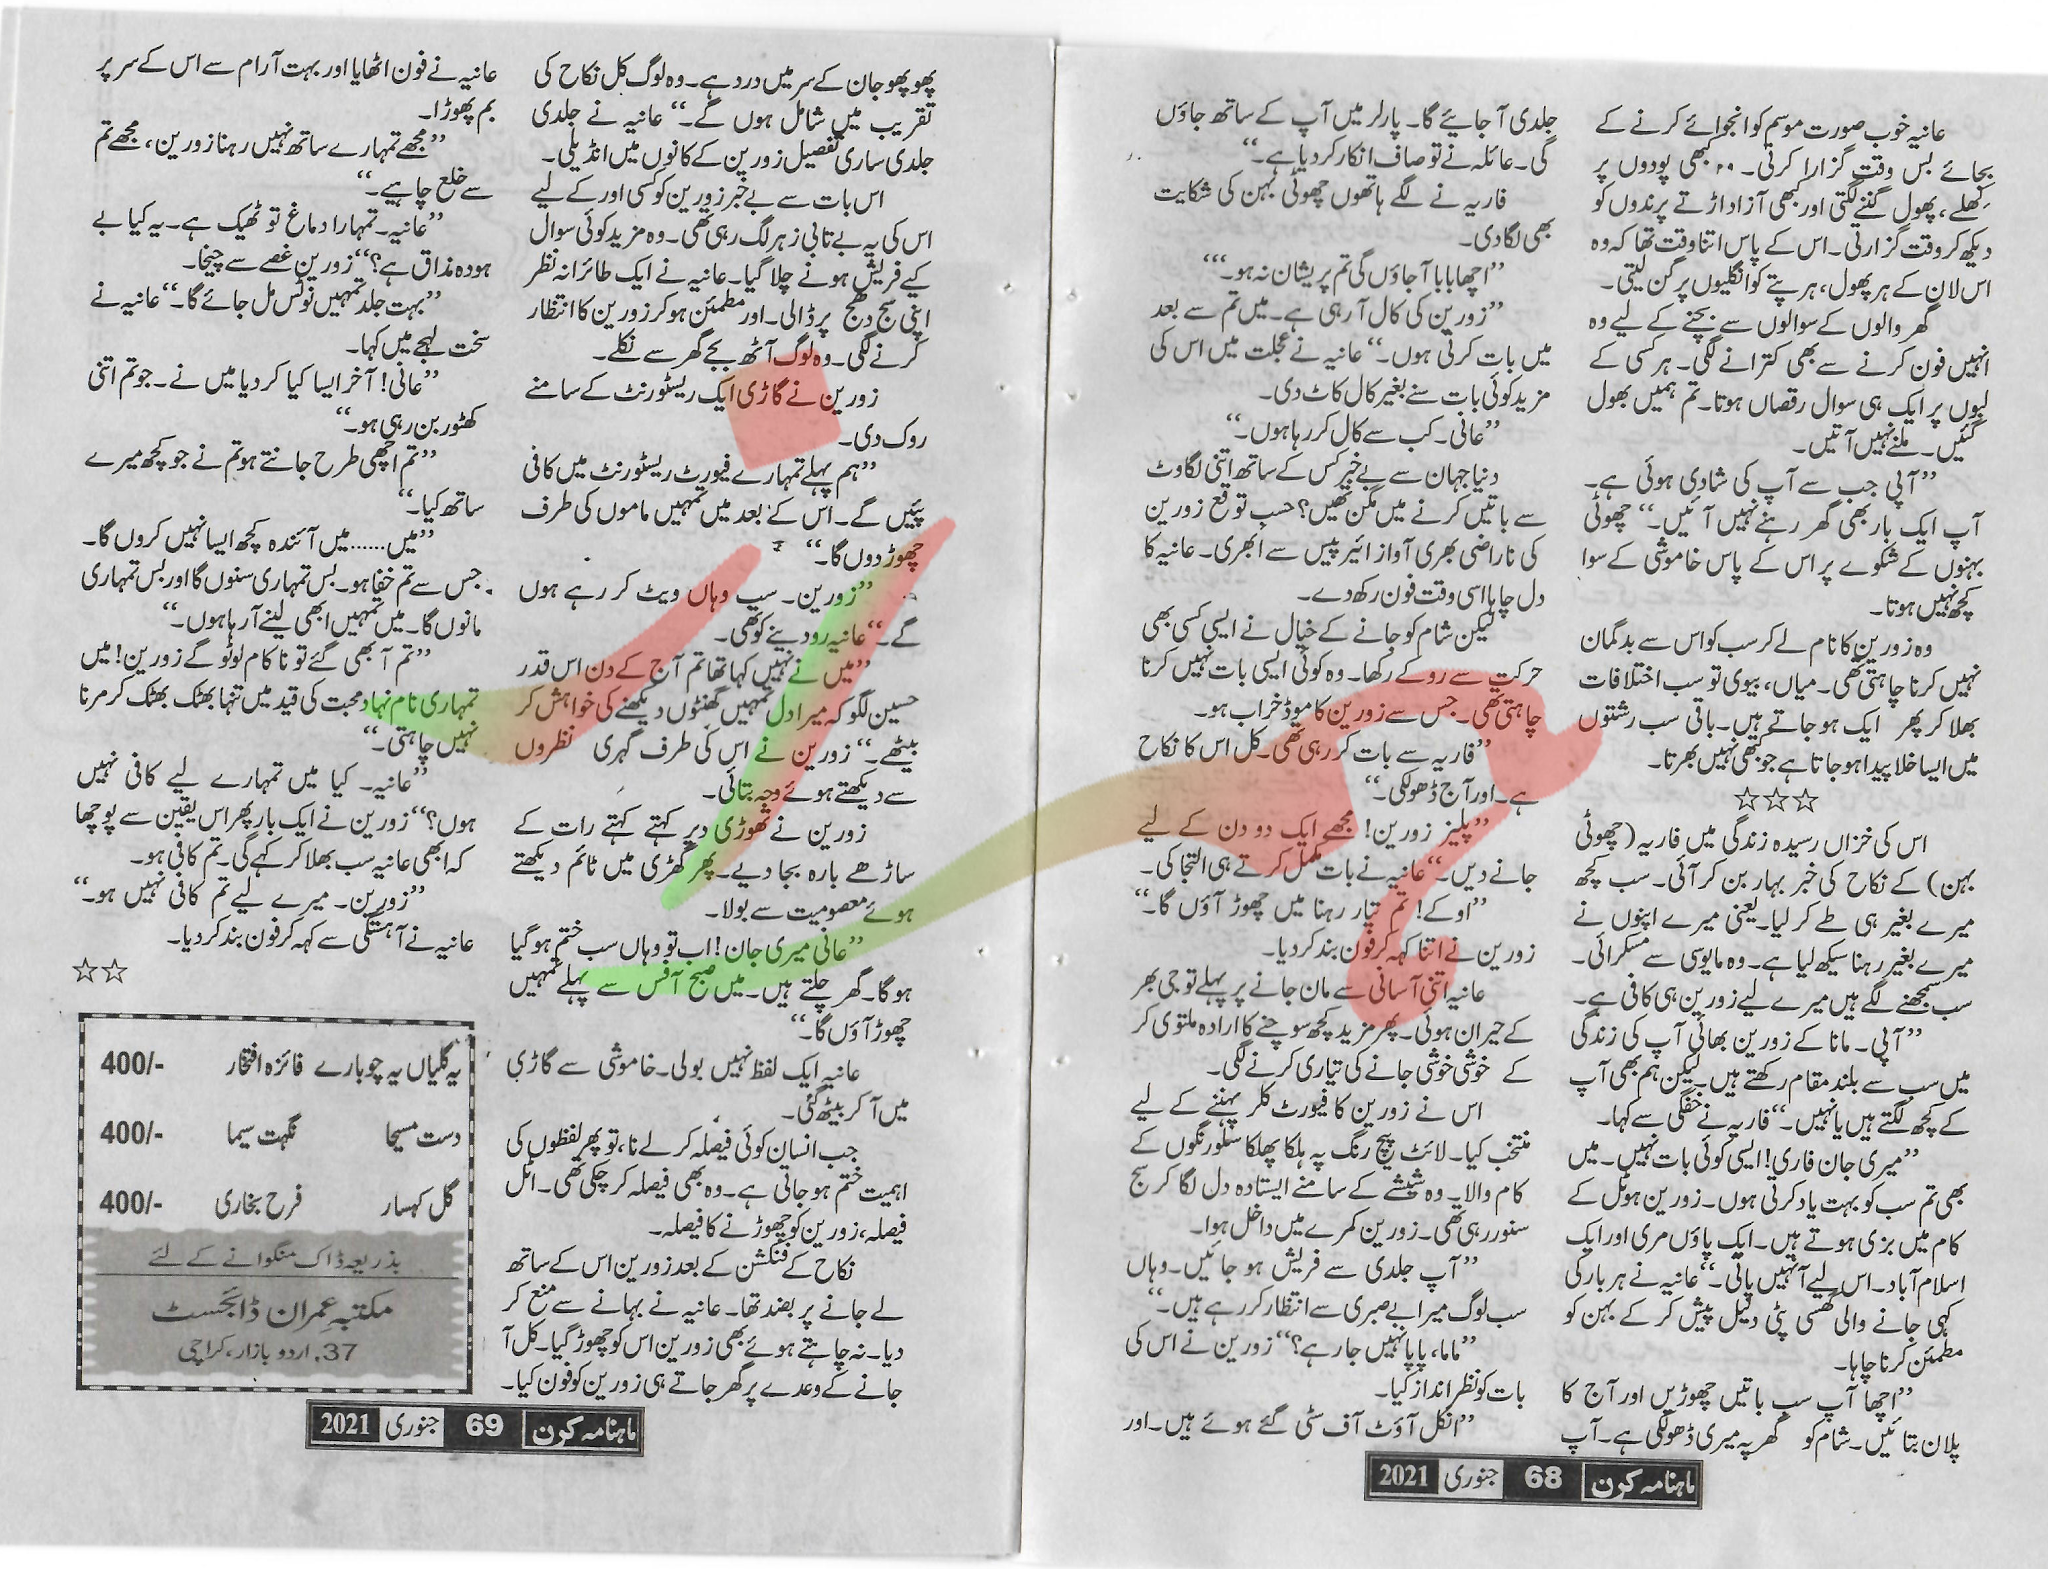 عانیہ خوب صورت موسم کو انجوائے کرنے کے
بجائے بس وقت گزارا کرتی۔ کبھی پودوں پر
کھلے، پھول گننے لگتی اور کبھی آزاد اڑتے پرندوں کو
دیکھ کر وقت گزارتی۔ اس کے پاس اتنا وقت تھا کہ وہ
اس لان کے ہر پھول، ہر پتے کو انگلیوں پر گن لیتی۔
گھر والوں کے سوالوں سے بچنے کے لیے وہ
انہیں فون کرنے سے بھی کترانے لگی۔ ہر کسی کے
لبوں پر ایک ہی سوال رقصاں ہوتا۔ تم ہمیں بھول
گئیں۔ ملنے نہیں آتیں۔
”آپی جب سے آپ کی شادی ہوئی ہے۔
آپ ایک بار بھی گھر رہنے نہیں آئیں۔“ چھوٹی
بہنوں کے شکوے پر اس کے پاس خاموشی کے سوا
کچھ نہیں ہوتا۔
وہ زورین کا نام لے کر سب کو اس سے بدگمان
نہیں کرنا چاہتی تھی۔ میاں، بیوی تو سب اختلافات
بھلا کر پھر ایک ہو جاتے ہیں۔ باقی سب رشتوں
میں ایسا خلا پیدا ہو جاتا ہے جو کبھی نہیں بھرتا۔
☆☆☆
اس کی خزاں رسیدہ زندگی میں فاریہ (چھوٹی
بہن) کے نکاح کی خبر بہار بن کر آئی۔ سب کچھ
میرے بغیر ہی طے کر لیا۔ یعنی میرے اپنوں نے
میرے بغیر رہنا سیکھ لیا ہے۔ وہ مایوسی سے مسکرائی۔
سب سمجھنے لگے ہیں میرے لیے زورین ہی کافی ہے۔
”آپی۔ مانا کے زورین بھائی آپ کی زندگی
میں سب سے بلند مقام رکھتے ہیں۔ لیکن ہم بھی آپ
کے کچھ لگتے ہیں یا نہیں۔“ فاریہ نے خفگی سے کہا۔
”میری جان فاری! ایسی کوئی بات نہیں۔ میں
بھی تم سب کو بہت یاد کرتی ہوں۔ زورین ہوٹل کے
کام میں بزی ہوتے ہیں۔ ایک پاؤں مری اور ایک
اسلام آباد۔ اس لیے آ نہیں پاتی۔“ عانیہ نے ہر بار کی
کہی جانے والی گھسی پٹی دلیل پیش کر کے بہن کو
مطمئن کرنا چاہا۔
”اچھا آپ سب باتیں چھوڑیں اور آج کا
پلان بتائیں۔ شام کو گھر پہ میری ڈھولکی ہے۔ آپ
جلدی آ جائیے گا۔ پارلر میں آپ کے ساتھ جاؤں
گی۔ عائلہ نے تو صاف انکار کر دیا ہے۔“
فاریہ نے لگے ہاتھوں چھوٹی بہن کی شکایت
بھی لگا دی۔
”اچھا بابا آ جاؤں گی تم پریشان نہ ہو۔“
”زورین کی کال آ رہی ہے۔ میں تم سے بعد
میں بات کرتی ہوں۔“ عانیہ نے عجلت میں اس کی
مزید کوئی بات سنے بغیر کال کاٹ دی۔
”عانی۔ کب سے کال کر رہا ہوں۔“
دنیا جہان سے بے خبر کس کے ساتھ اتنی لگاوٹ
سے باتیں کرنے میں مگن تھیں؟ حسب توقع زورین
کی ناراضی بھری آواز ائیر پیس سے ابھری۔ عانیہ کا
دل چاہا اسی وقت فون رکھ دے۔
لیکن شام کو جانے کے خیال نے ایسی کسی بھی
حرکت سے روکے رکھا۔ وہ کوئی ایسی بات نہیں کرنا
چاہتی تھی۔ جس سے زورین کا موڈ خراب ہو۔
”فاریہ سے بات کر رہی تھی۔ کل اس کا نکاح
ہے۔ اور آج ڈھولکی۔“
”پلیز زورین! مجھے ایک دو دن کے لیے
جانے دیں۔“ عانیہ نے بات مکمل کرتے ہی التجا کی۔
”اوکے! تم تیار رہنا میں چھوڑ آؤں گا۔“
زورین نے اتنا کہہ کر فون بند کر دیا۔
عانیہ اتنی آسانی سے مان جانے پر پہلے تو جی بھر
کے حیران ہوئی۔ پھر مزید کچھ سوچنے کا ارادہ ملتوی کر
کے خوشی خوشی جانے کی تیاری کرنے لگی۔
اس نے زورین کا فیورٹ کلر پہننے کے لیے
منتخب کیا۔ لائٹ پیچ رنگ پہ ہلکا پھلکا سلور نگوں کے
کام والا۔ وہ شیشے کے سامنے ایستادہ دل لگا کر سج
سنور رہی تھی۔ زورین کمرے میں داخل ہوا۔
”آپ جلدی سے فریش ہو جائیں۔ وہاں
سب لوگ میرا بے صبری سے انتظار کر رہے ہیں۔“
”ماما، پاپا نہیں جا رہے؟“ زورین نے اس کی
بات کو نظر انداز کیا۔
”انکل آؤٹ آف سٹی گئے ہوئے ہیں۔ اور
ماہنامہ کرن 68 جنوری 2021
پھوپھو جان کے سر میں درد ہے۔ وہ لوگ کل نکاح کی
تقریب میں شامل ہوں گے۔“ عانیہ نے جلدی
جلدی ساری تفصیل زورین کے کانوں میں انڈیلی۔
اس بات سے بے خبر زورین کو کسی اور کے لیے
اس کی یہ بے تابی زہر لگ رہی تھی۔ وہ مزید کوئی سوال
کیے فریش ہونے چلا گیا۔ عانیہ نے ایک طائرانہ نظر
اپنی سج دھج پر ڈالی۔ اور مطمئن ہو کر زورین کا انتظار
کرنے لگی۔ وہ لوگ آٹھ بجے گھر سے نکلے۔
زورین نے گاڑی ایک ریسٹورنٹ کے سامنے
روک دی۔
”ہم پہلے تمہارے فیورٹ ریسٹورنٹ میں کافی
پئیں گے۔ اس کے بعد میں تمہیں ماموں کی طرف
چھوڑ دوں گا۔“
”زورین۔ سب وہاں ویٹ کر رہے ہوں
گے۔“ عانیہ رو دینے کو تھی۔
”میں نے نہیں کہا تھا تم آج کے دن اس قدر
حسین لگو کہ میرا دل تمہیں گھنٹوں دیکھنے کی خواہش کر
بیٹھے۔“ زورین نے اس کی طرف گہری نظروں
سے دیکھتے ہوئے وجہ بتائی۔
زورین نے تھوڑی دیر کہتے کہتے رات کے
ساڑھے بارہ بجا دیے۔ پھر گھڑی میں ٹائم دیکھتے
ہوئے معصومیت سے بولا۔
”عانی میری جان! اب تو وہاں سب ختم ہو گیا
ہو گا۔ گھر چلتے ہیں۔ میں صبح آفس سے پہلے تمہیں
چھوڑ آؤں گا۔“
عانیہ ایک لفظ نہیں بولی۔ خاموشی سے گاڑی
میں آ کر بیٹھ گئی۔
جب انسان کوئی فیصلہ کر لے نا، تو پھر لفظوں کی
اہمیت ختم ہو جاتی ہے۔ وہ بھی فیصلہ کر چکی تھی۔ اٹل
فیصلہ، زورین کو چھوڑنے کا فیصلہ۔
نکاح کے فنکشن کے بعد زورین اس کے ساتھ
لے جانے پر بضد تھا۔ عانیہ نے بہانے سے منع کر
دیا۔ نہ چاہتے ہوئے بھی زورین اس کو چھوڑ گیا۔ کل آ
جانے کے وعدے پر گھر جاتے ہی زورین کو فون کیا۔
عانیہ نے فون اٹھایا اور بہت آرام سے اس کے سر پر
بم پھوڑا۔
”مجھے تمہارے ساتھ نہیں رہنا زورین، مجھے تم
سے خلع چاہیے۔“
”عانیہ۔ تمہارا دماغ تو ٹھیک ہے۔ یہ کیا بے
ہودہ مذاق ہے؟“ زورین غصے سے چیخا۔
”بہت جلد تمہیں نوٹس مل جائے گا۔“ عانیہ نے
سخت لہجے میں کہا۔
”عانی! آخر ایسا کیا کر دیا میں نے۔ جو تم اتنی
کٹھور بن رہی ہو۔“
”تم اچھی طرح جانتے ہو تم نے جو کچھ میرے
ساتھ کیا۔“
”میں...... میں آئندہ کچھ ایسا نہیں کروں گا۔
جس سے تم خفا ہو۔ بس تمہاری سنوں گا اور بس تمہاری
مانوں گا۔ میں تمہیں ابھی لینے آ رہا ہوں۔“
”تم آ بھی گئے تو ناکام لوٹو گے زورین! میں
تمہاری نام نہاد محبت کی قید میں تنہا بھٹک بھٹک کر مرنا
نہیں چاہتی۔“
”عانیہ۔ کیا میں تمہارے لیے کافی نہیں
ہوں؟“ زورین نے ایک بار پھر اس یقین سے پوچھا
کہ ابھی عانیہ سب بھلا کر کہے گی۔ تم کافی ہو۔
”زورین۔ میرے لیے تم کافی نہیں ہو۔“
عانیہ نے آہستگی سے کہہ کر فون بند کر دیا۔
☆☆
یہ گلیاں یہ چوبارے فائزہ افتخار 400/-
دست مسیحا نگہت سیما 400/-
گل کہسار فرح بخاری 400/-
بذریعہ ڈاک منگوانے کے لئے
مکتبہ عمران ڈائجسٹ
37, اردو بازار، کراچی
ماہنامہ کرن 69 جنوری 2021